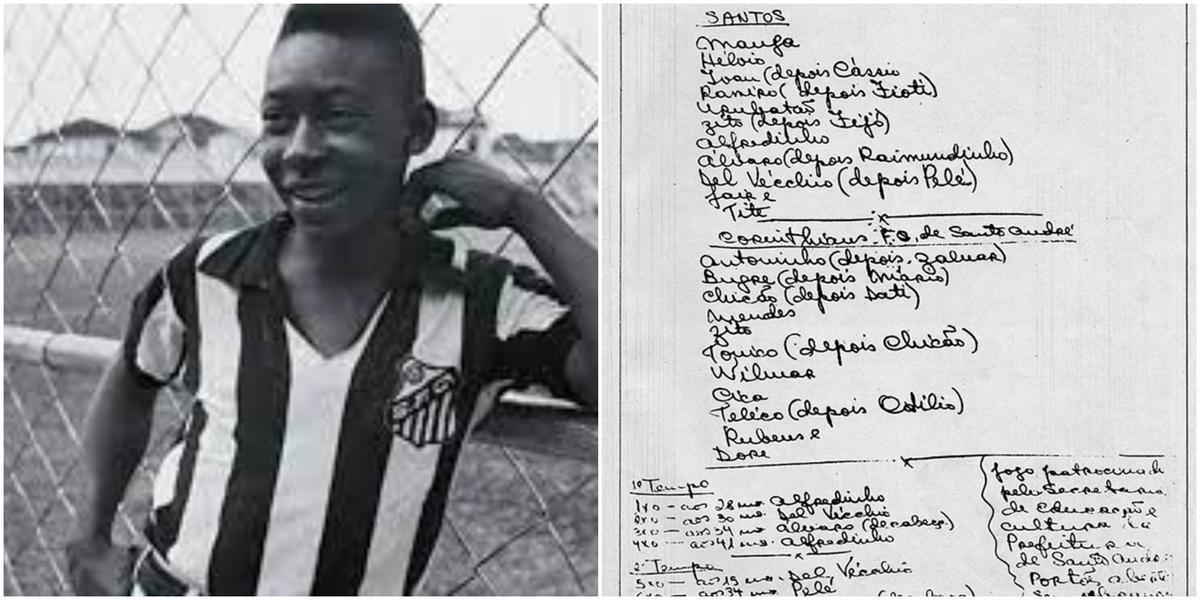 SANTOS
Manga
Hélvio
Ivan (depois Cássio
Ramiro (depois Fioti)
Urubatão
Zito (depois Feijó)
Alfredinho
Álvaro (depois Raimundinho)
Del Vécchio (depois Pelé)
Jair e
Tite
Corinthians F.C. de Santo André
Antoninho (depois Zaluar)
Bugre (depois Mário)
Chicão (depois Dati)
Mendes
Zito
Tonico (depois Chicão)
Wilmar
Cica
Teleco (depois Odilio)
Rubens e
Dore
1º Tempo
1x0 - aos 28 m. Alfredinho
2x0 - aos 30 m. Del Vecchio
3x0 - aos 34 m. Álvaro (de cabeça)
4x0 - aos 41 m. Alfredinho
2º Tempo
5x0 - aos 15 m. Del Vécchio
aos 34 m. Pelé
Jogo patrocinad
pela Secretaria
de Educação e
Cultura da
Prefeitura
de Santo André
Portões abert